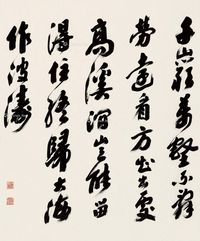 千岩萬壑不辭
勞遠看方知出處
高溪澗豈能留
得住終歸大海
作波濤